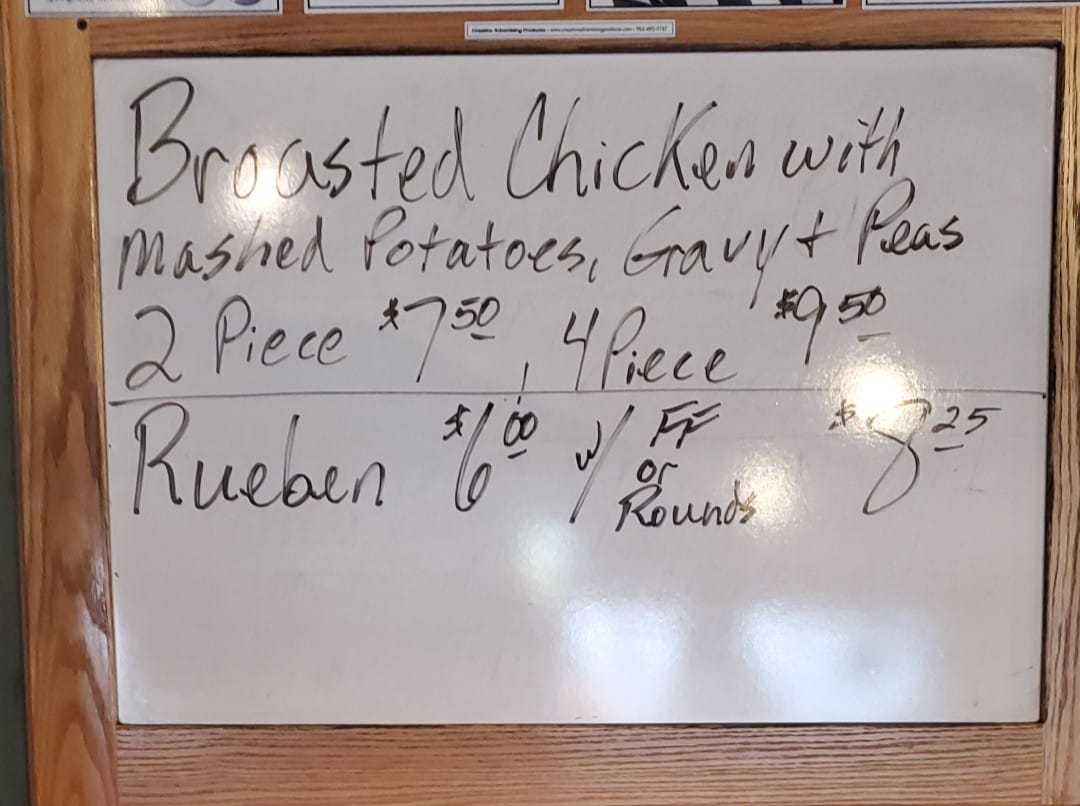 Broasted Chicken with
mashed Potatoes, Gravy + Peas
2 Piece $7 50, 4 Piece $9 50
Rueben $6 00 w/ FF or Rounds $8 25